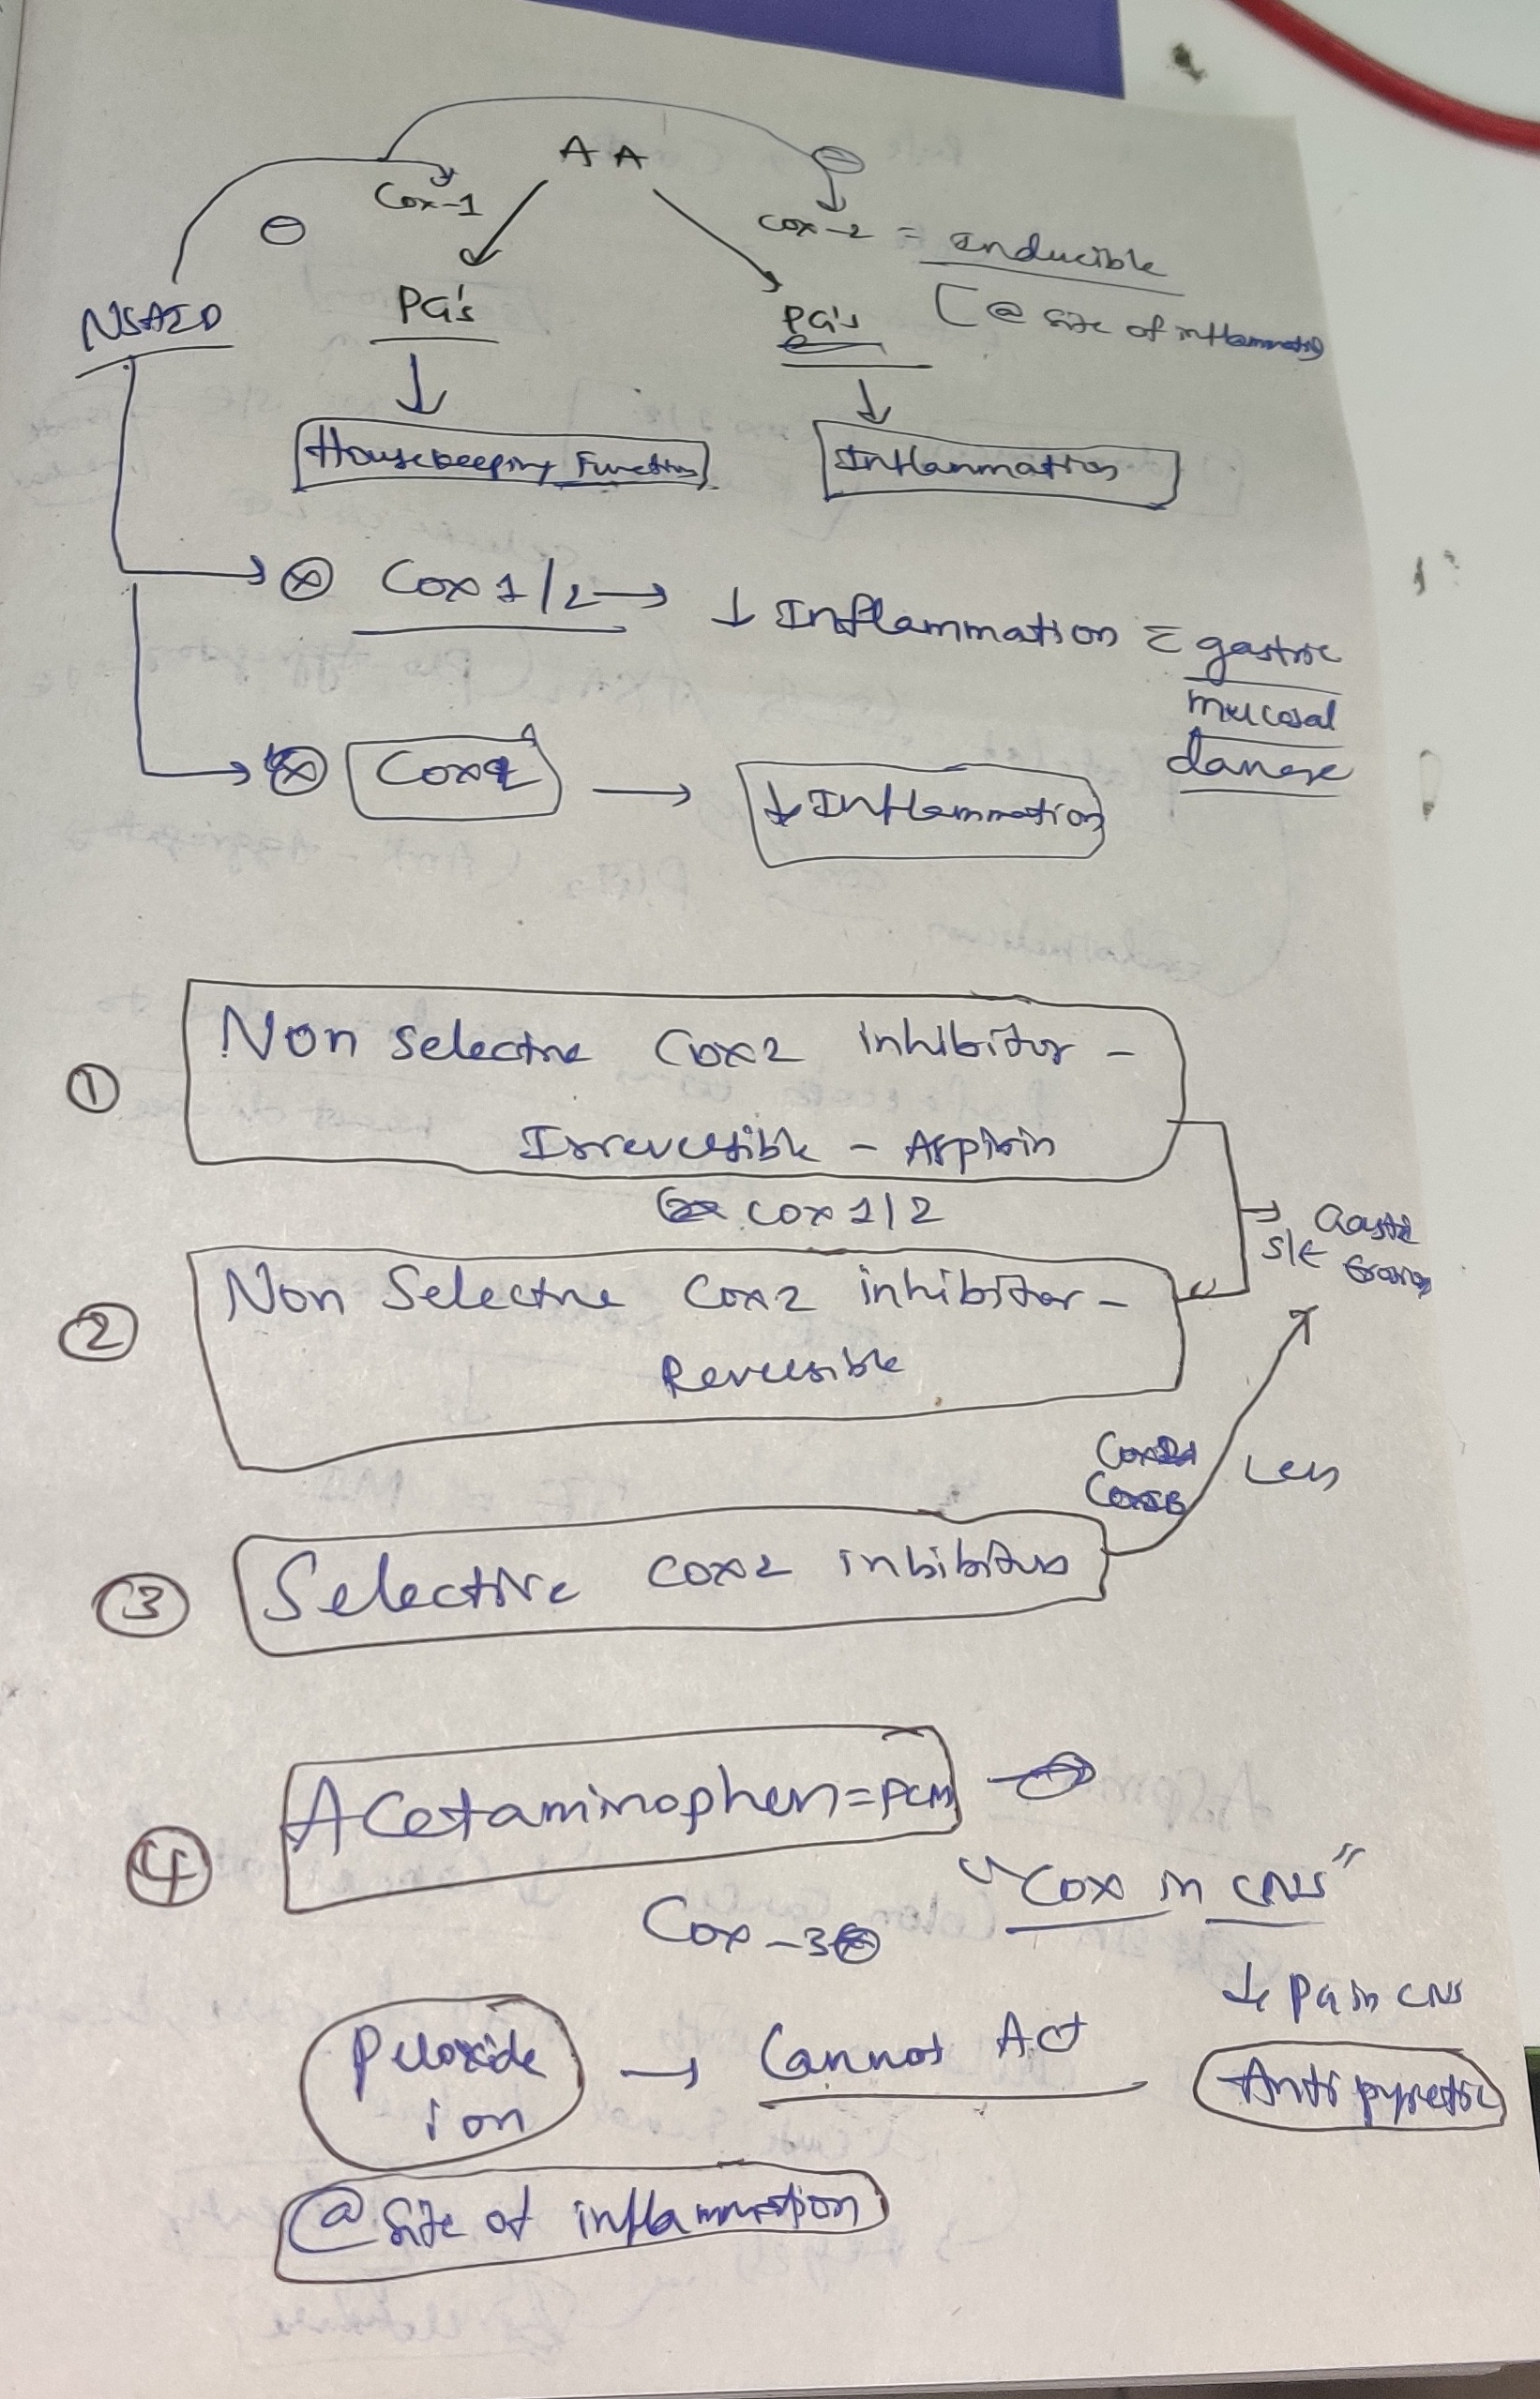 AA
Cox-1
Cox-2 = inducible
NSAID
PG's
PG's
[@ site of inflammation
Housekeeping Functions
Inflammation
Cox 1/2 → ↓ Inflammation c̄ gastric
mucosal
Cox2 → ↓ Inflammation
①
Non Selective Cox2 inhibitor -
Irreversible - Aspirin
Cox 1/2
S/E
②
Non Selective Cox2 inhibitor -
Reversible
Less
③
Selective Cox2 inhibitors
④
Acetaminophen = PCM
"Cox in CNS"
Cox-3
↓ PG in CNS
Peroxide → Cannot Act
ion
Antipyretic
@ Site of inflammation